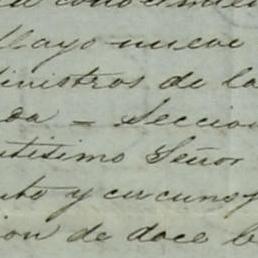 Mayo nueve
inistros de la
da = Seccion
ntisimo Señor
nto y circuns
ion de doce